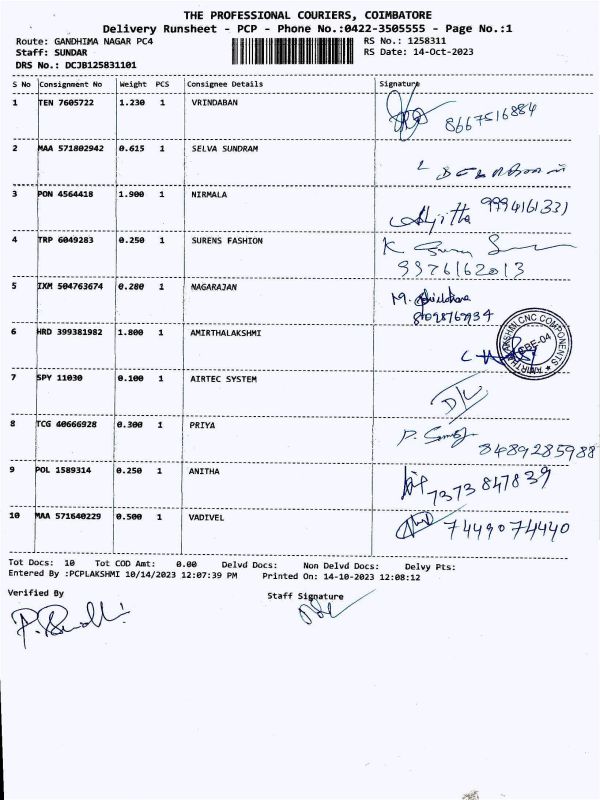 THE PROFESSIONAL COURIERS, COIMBATORE
Delivery Runsheet - PCP - Phone No.:0422-3505555 - Page No.:1
Route: GANDHIMA NAGAR PC4 RS No.: 1258311
Staff: SUNDAR RS Date: 14-Oct-2023
DRS No.: DCJB125831101
S No Consignment No Weight PCS Consignee Details Signature
1 TEN 7605722 1.230 1 VRINDABAN
8667516884
2 MAA 571802942 0.615 1 SELVA SUNDRAM
3 PON 4564418 1.900 1 NIRMALA
9994161331
4 TRP 6049283 0.250 1 SURENS FASHION
K
9976162013
5 IXM 504763674 0.280 1 NAGARAJAN
M.
6 HRD 399381982 1.800 1 AMIRTHALAKSHMI
AMIRTHALAKSHMI CNC COMPONENTS
CBE-04
7 SPY 11030 0.100 1 AIRTEC SYSTEM
D/L
8 TCG 40666928 0.300 1 PRIYA
8489285988
9 POL 1589314 0.250 1 ANITHA
7373847839
10 MAA 571640229 0.500 1 VADIVEL
7449074440
Tot Docs: 10 Tot COD Amt: 0.00 Delvd Docs: Non Delvd Docs: Delvy Pts:
Entered By :PCPLAKSHMI 10/14/2023 12:07:39 PM Printed On: 14-10-2023 12:08:12
Verified By Staff Signature